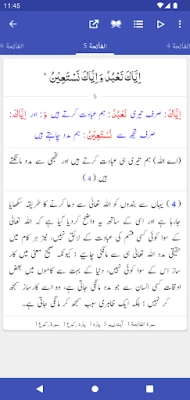 11:45
4 الفاتحة
5 الفاتحة
6 الفاتحة
اِيَّاكَ نَعْبُدُ وَ اِيَّاكَ نَسْتَعِيْنُ
5
اِيَّاكَ: صرف تیری نَعْبُدُ: ہم عبادت کرتے ہیں وَ: اور اِيَّاكَ:
صرف تجھ سے نَسْتَعِيْنُ: ہم مدد چاہتے ہیں
(اے اللہ) ہم تیری ہی عبادت کرتے ہیں اور تجھی سے مدد مانگتے
ہیں (4)
(4) یہاں سے بندوں کو اللہ تعالیٰ سے دعا کرنے کا طریقہ سکھایا
جارہا ہے اور اسی کے ساتھ یہ واضح کردیا گیا ہے کہ اللہ تعالیٰ
کے سوا کوئی کسی قسم کی عبادت کے لائق نہیں، نیز ہر کام میں
حقیقی مدد اللہ تعالیٰ ہی سے مانگنی چاہیے؛ کیونکہ صحیح معنی میں کار
ساز اس کے سوا کوئی نہیں، دنیا کے بہت سے کاموں میں بعض
اوقات کسی انسان سے جو مدد مانگی جاتی ہے، وہ اسے کارساز سمجھ
کر نہیں؛ بلکہ ایک ظاہری سبب سمجھ کر مانگی جاتی ہے۔